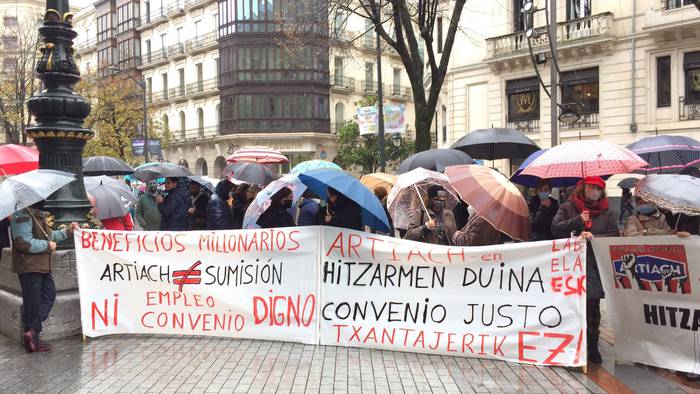 BENEFICIOS MILLONARIOS
ARTIACH ≠ SUMISIÓN
NI EMPLEO DIGNO
CONVENIO
ARTIACH-en
HITZARMEN DUINA
CONVENIO JUSTO
TXANTAJERIK EZ!
LAB
ELA
ESK
ARTIACH
HITZA